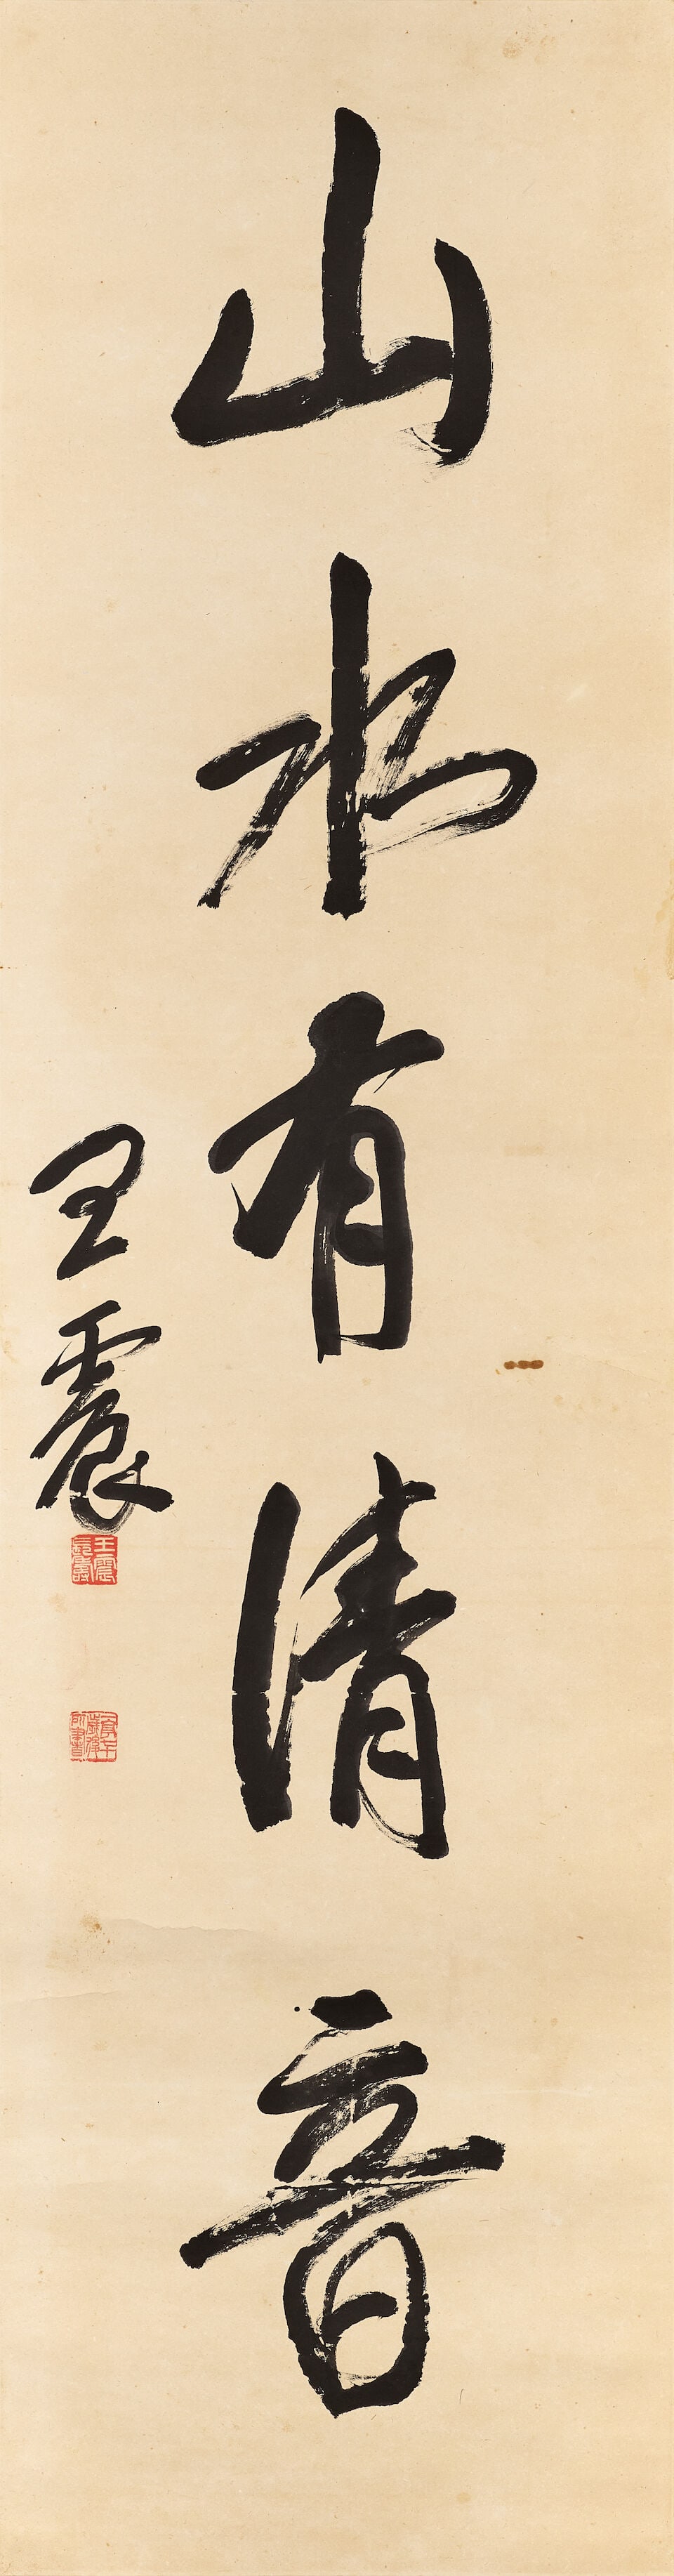 山水有清音
王震
王震長壽